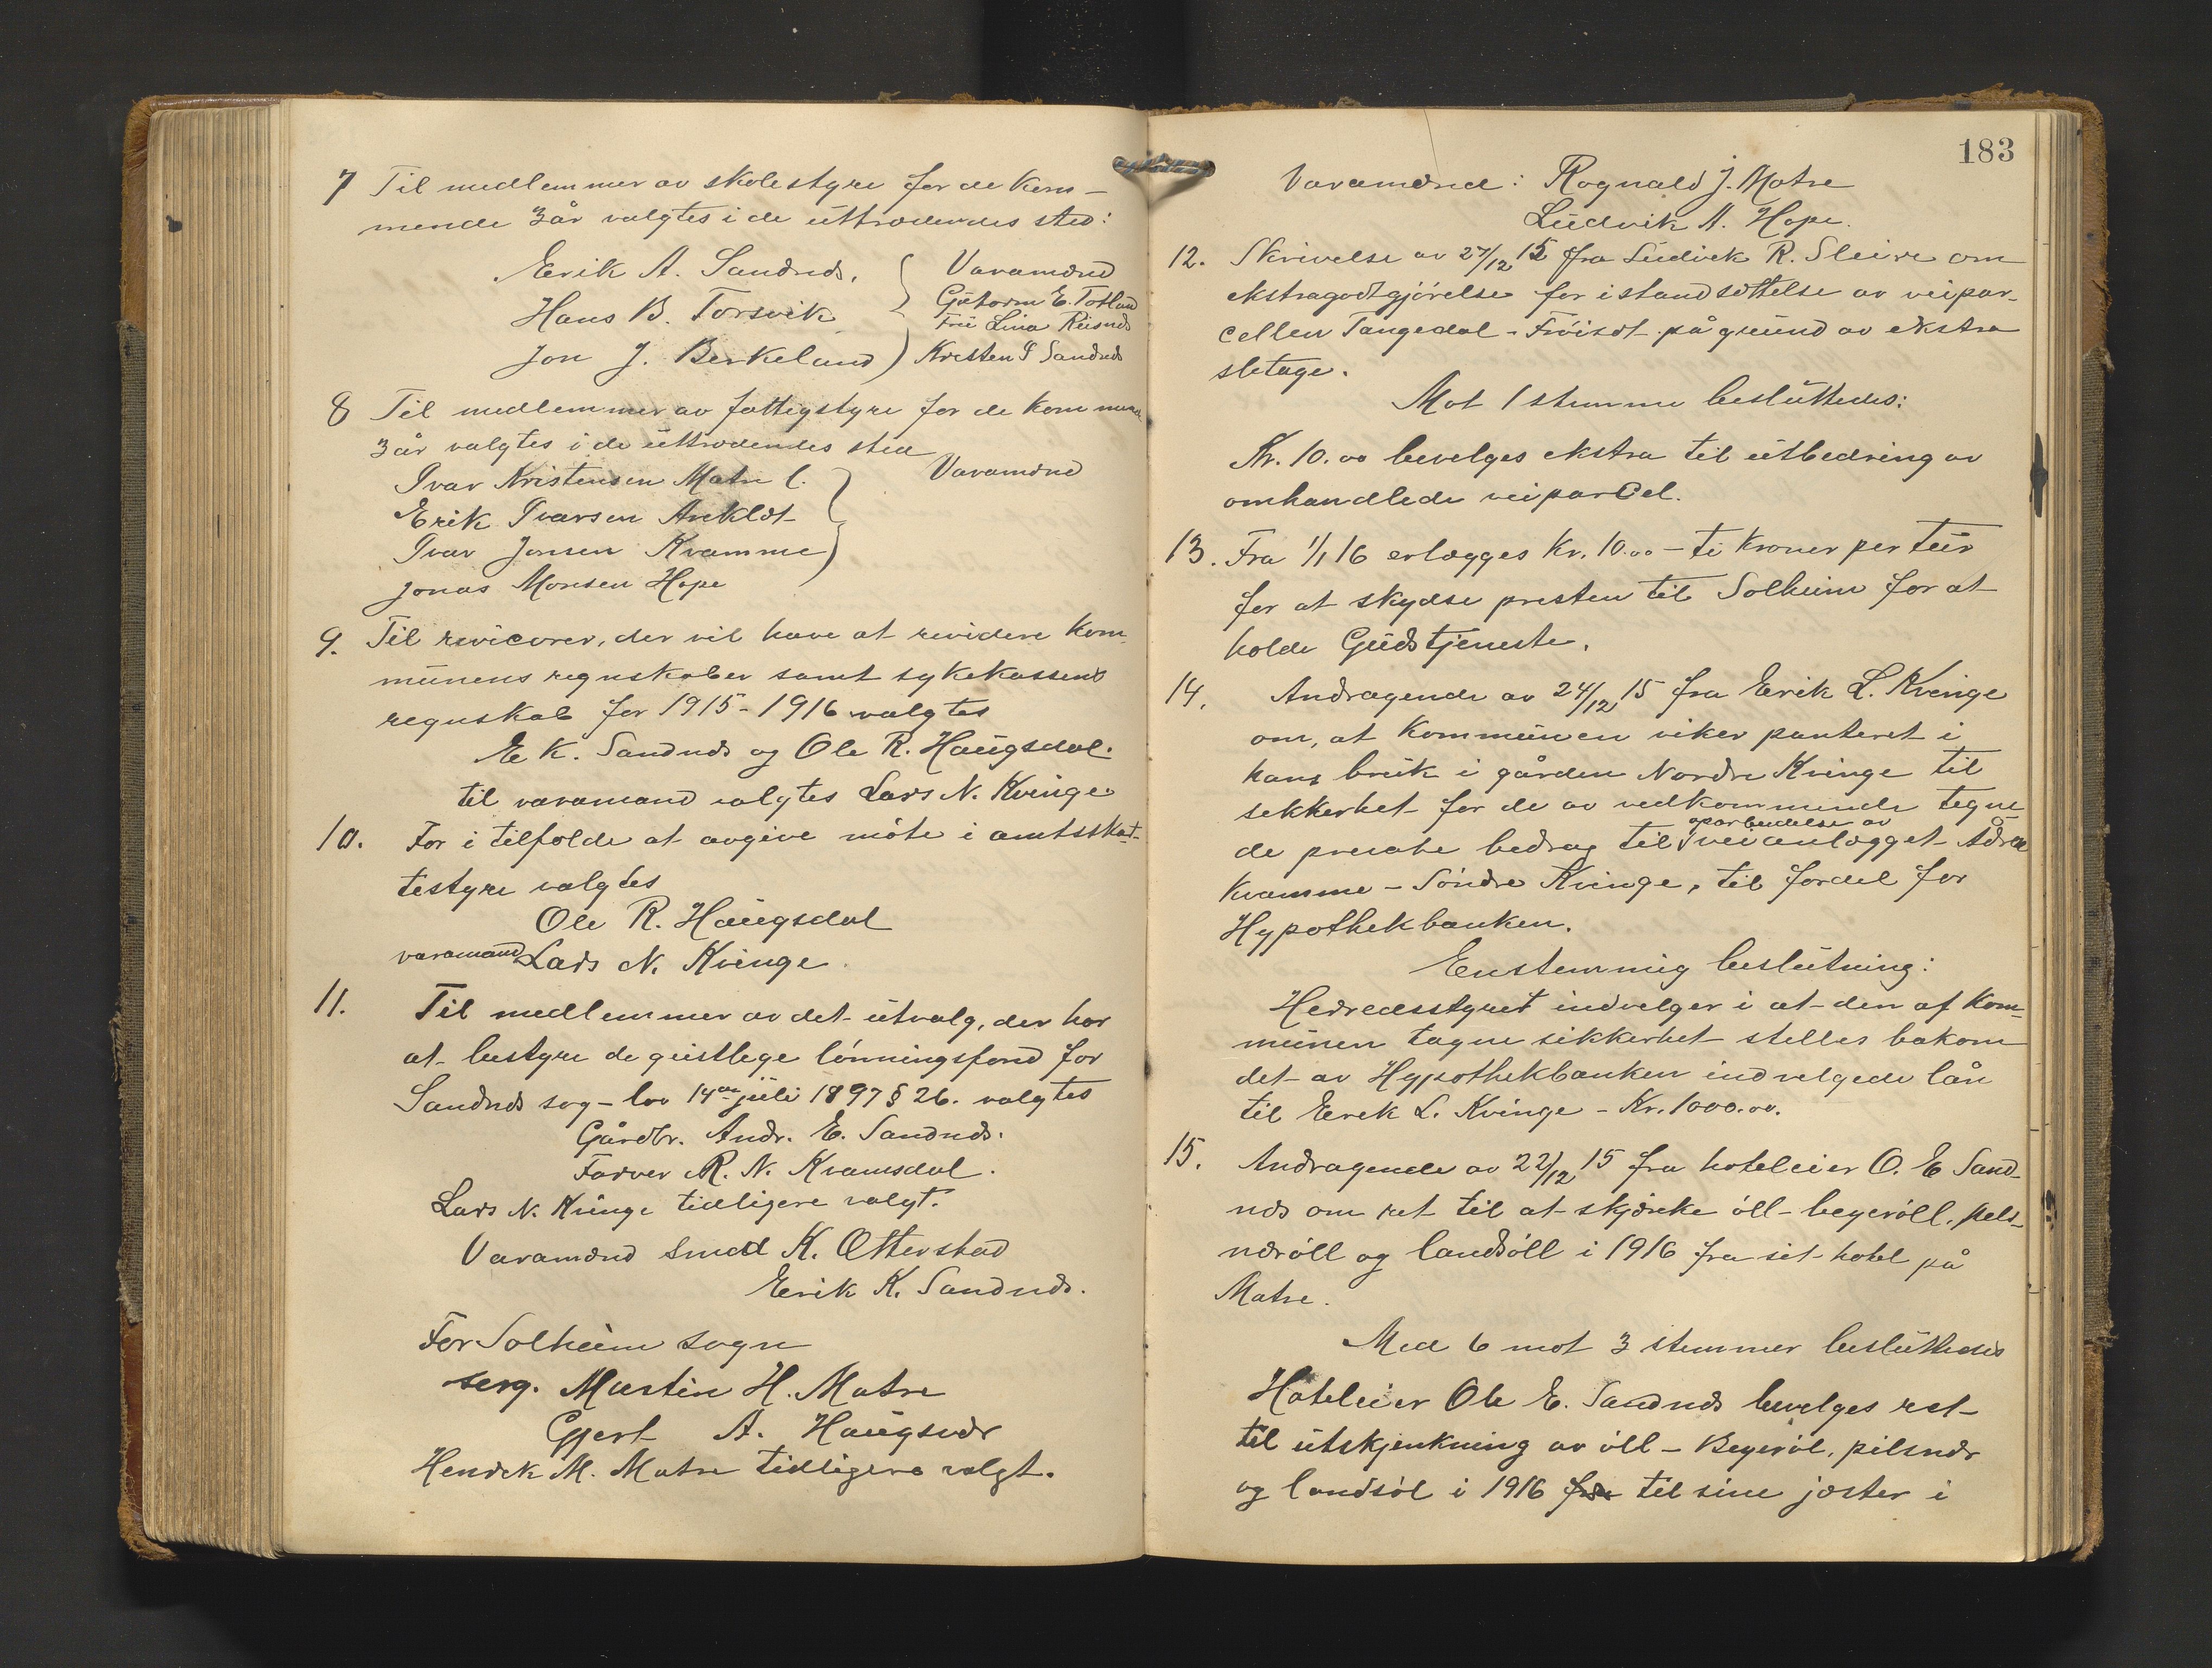 7 Til medlemmer av skolestyre for de kom-
mende 3 år valgtes i de uttrædendes sted:
Erik A. Sandnæs. Varamænd
Hans B. Torsvik Gutorm E. Totland
Fru Lina Risnæs
Jon J. Berkeland Kristen I Sandnæs
8 Til medlemmer av fattigstyre for de kommende
3 år valgtes i de uttrædendes sted
Ivar Kristensen Matre Varamænd
Erik Ivarsen Areklæt
Ivar Jonsen Kvamme
Jonas Monsen Hope
9. Til revisorer, der vil have at revidere kom-
munens regnskaber samt sykekassens
regnskab for 1915-1916 valgtes
E K. Sandnæs og Ole R. Haugsdal.
til varamand valgtes Lars N. Kvinge
10. For i tilfælde at avgive møte i amtsskat-
testyre valgtes
Ole R. Haugsdal
varamand Lars N. Kvinge.
11. Til medlemmer av det utvalg, der har
at bestyre de geistlege lønningsfond for
Sandnæs sog - lov 14de juli 1897 § 26. valgtes
Gårdbr. Andr. E. Sandnæs.
Farver R. N. Kramsdal.
Lars N. Kvinge tidligere valgt.
Varamænd Smed K. Otterstad
Erik K. Sandnæs.
For Solheim sogn
serg. Martin H. Matre
Gjert A. Haugsvær
Henrek M. Matre tidligere valgt.
183
Varamænd: Rognald J. Matre
Ludvik A. Hope.
12. Skrivelse av 27/12 15 fra Ludvik R. Sleire om
ekstragodtgjørelse for istandsættelse av veipar-
cellen Tangedal - Frøiset på grund av ekstra
sletage.
Mot 1 stemme besluttedes:
Kr. 10.00 bevelges ekstra til utbedring av
omhandlede veiparcel.
13. Fra 1/1 16 erlægges Kr. 10.00 - ti kroner per tur
for at skydse presten til Solheim for at
holde Gudstjeneste.
14. Andragende av 24/12 15 fra Erik L. Kvinge
om, at kommunen viker panteret i
hans bruk i gården Nordre Kvinge til
sekkerhet for de av vedkommende tegne-
de private bedrag til oparbeidelse av veianlægget Ådre
Kvamme - Søndre Kvinge, til fordel for
Hypothekbanken.
Enstemmig beslutning:
Herredsstyret indvelger i at den af kom-
munen tagne sikkerhet stelles bakom
det av Hypothekbanken indvelgede lån
til Erek L. Kvinge - Kr. 1000.00.
15. Andragende av 22/12 15 fra hoteleier O. E Sand-
næs om ret til at skjænke øll - beyerøll, pels-
nærøll og landsøll i 1916 fra sit hotel på
Matre.
Med 6 mot 3 stemmer besluttedes
Hoteleier Ole E. Sandnæs bevelges ret
til utskjenkning av øll - Beyerøl, pilsnær
og landsøl i 1916 fra til sine jæster i